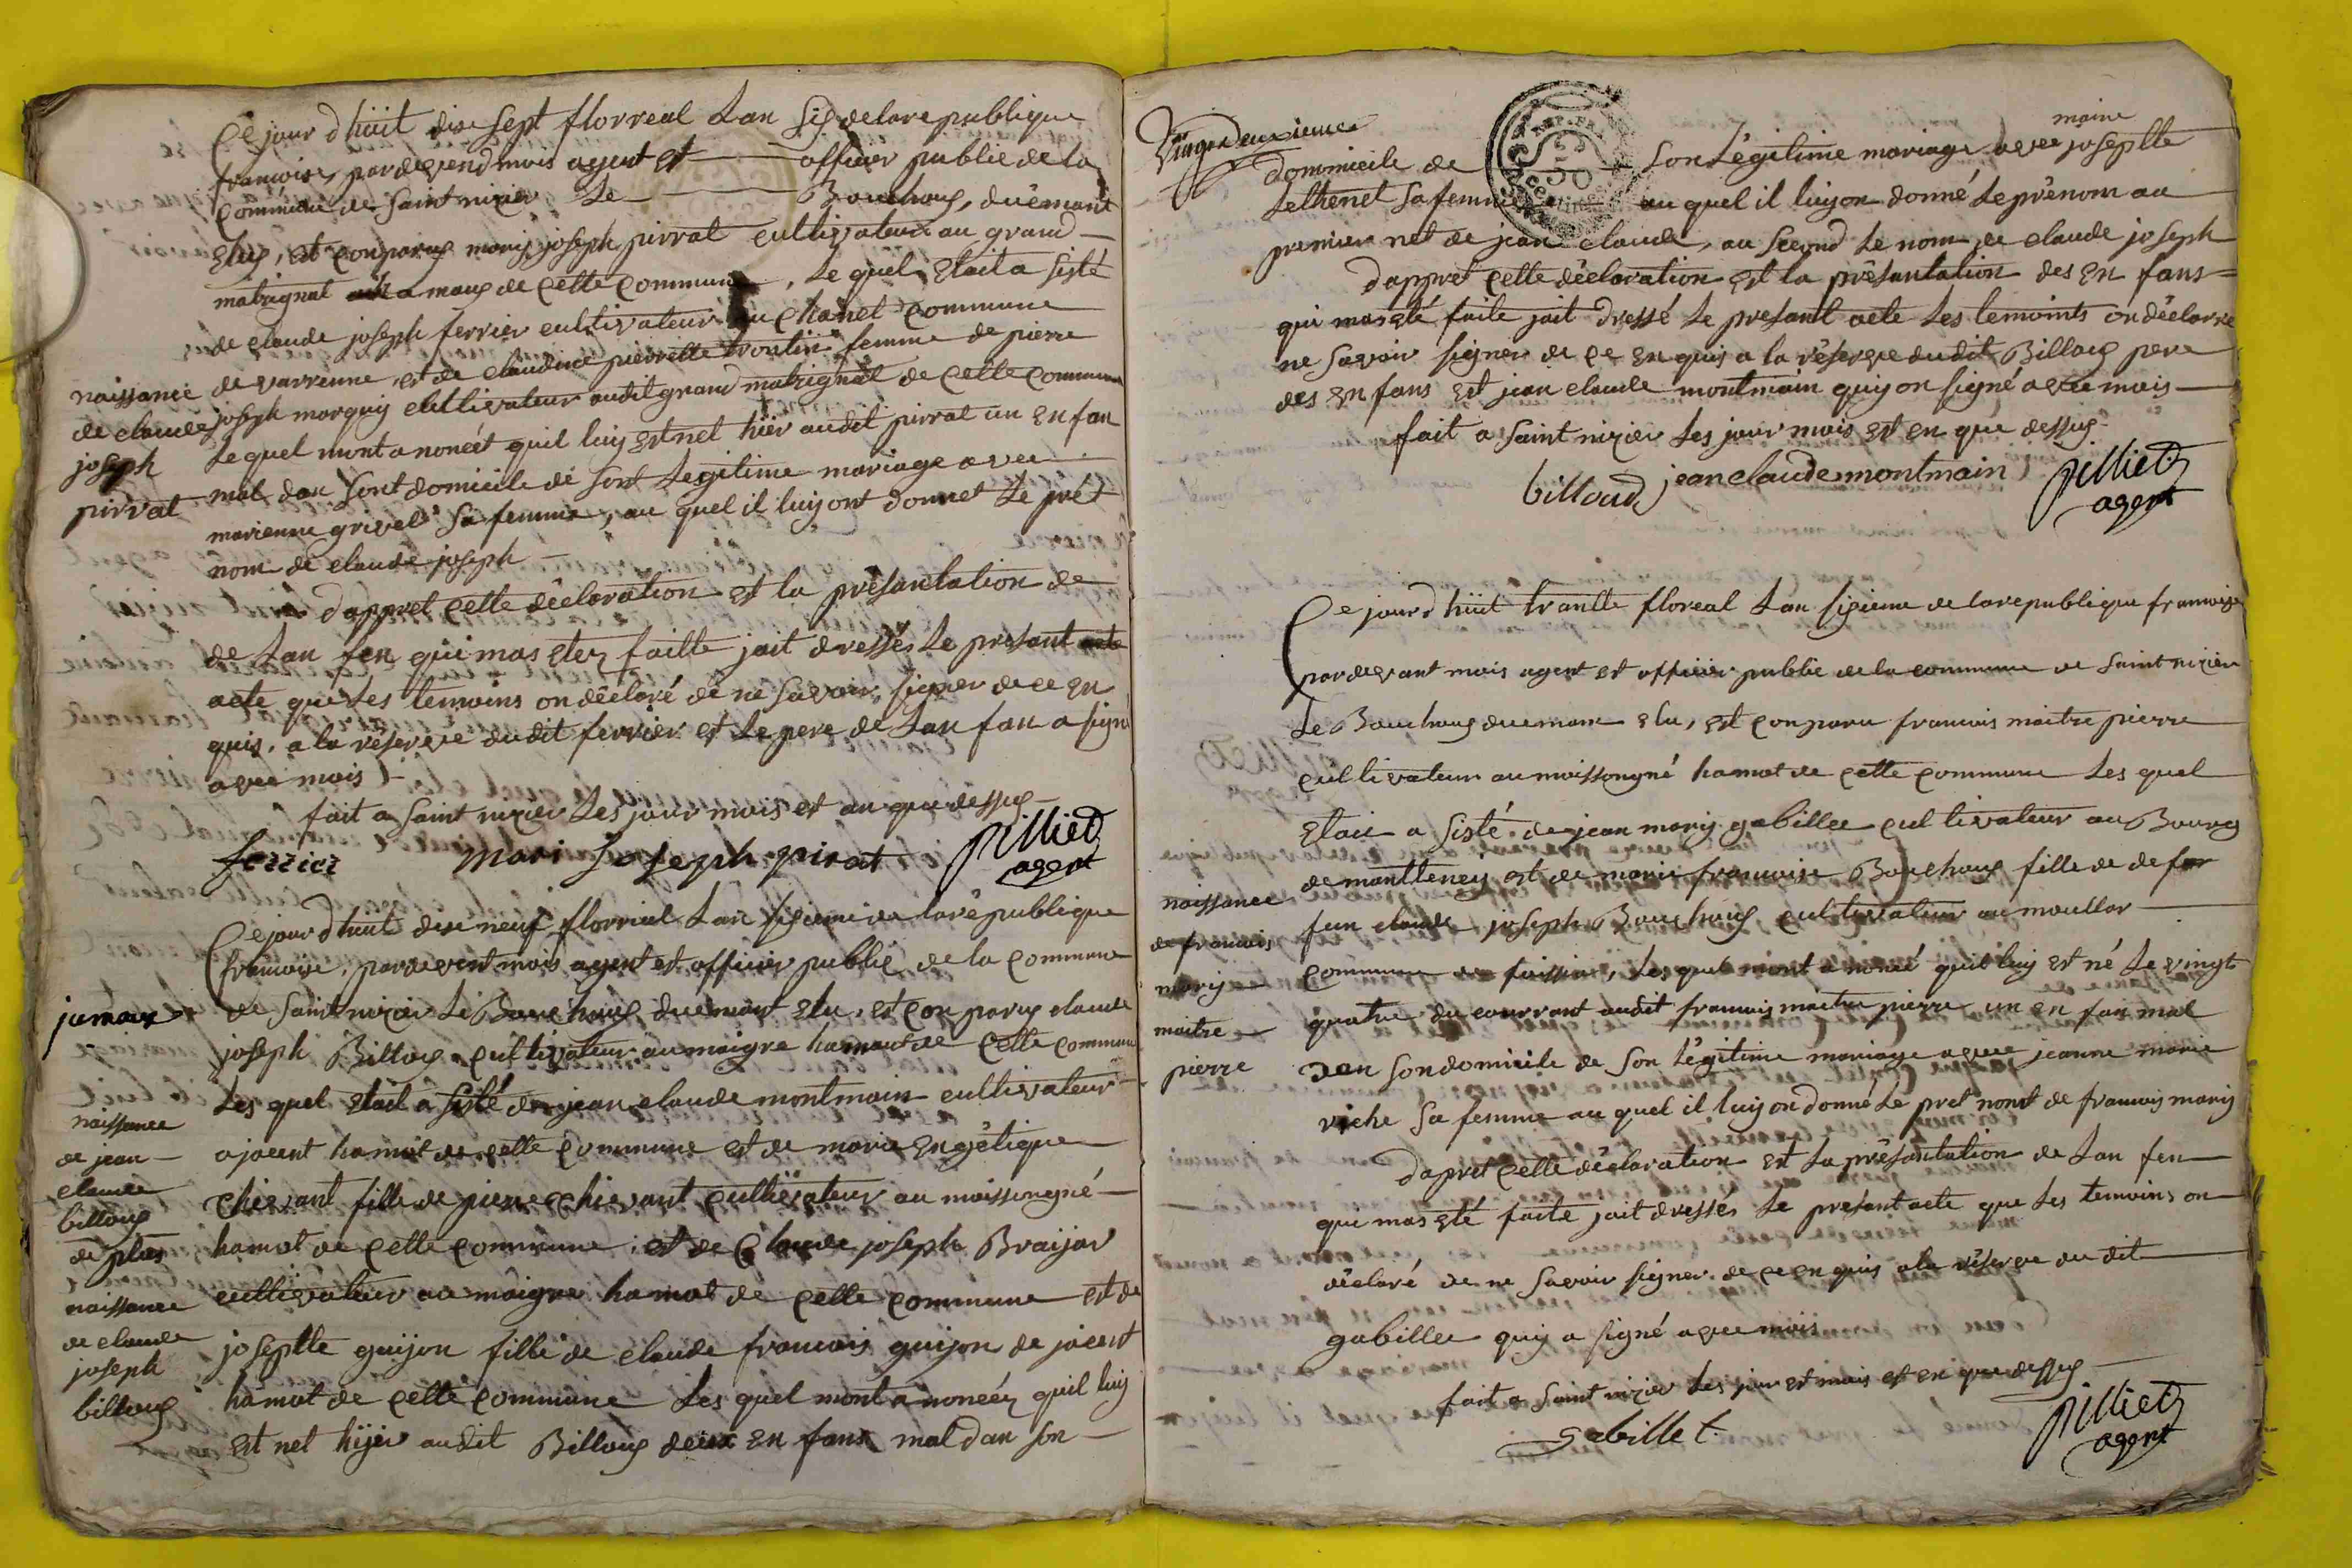 Ce jour d huit dise sept florreal Lan six de la republique
francoise, par devend mois agent est officier public de la
Commune de Saint nizier Le Bouchoux, duêmant
Elus, est Conparus marij joseph pirrat cultivateur au grand
matrignat a maux de Cette Commune, Le quel Etait a sisté
de claude joseph ferrier cultivateur au Chanel Commune
de varrenne, est de claudine pierrette troulin femme de pierre
joseph morquij cultivateur audit grand matrignat de Cette Commune
Le quel mont a noncét quil luij Est net hier audit pirrat un En fan
mal dan Sont domicile de sont Legitime mariage avec
marienne grivel Sa femme, au quel il luij ont donnet Le prét
nom de claude joseph
naissance
de claude
joseph
pirrat
dappret Cette déclaration Est la présantation de
de Lan fen qui mas étez faille jait dressés Le presant
acte que Les temoins on déclaré de ne savoir signer de ce En
quis, a la réserve dudit ferrier et Le pere de Lan fan a signé
avec mois
fait a Saint nizier Les jour mois est an que dessus
ferrier mari Joseph pirat pilliet
agent
Ce jour d huit dise neuf florrial Lan sixieme de la république
francoise, par devent mois agent est officier public de la Commune
de Saint nizier Le Bouchoux, duemant Elu, est Con parus claude
joseph Billoux cultivateur au maigre hamaut de Cette Commune
Les quel Etait a sisté de jean claude montmain cultivateur
a jacent hamat de Cette Commune est de marie Engétique
Chievant fille de pierre Chievant Cultivateur au moissongné
hamat de Cette Commune, est de Claude joseph Braijar
cultivateur au maigre hamat de Cette Commune est de
joseptte guijon fille de claude francois guijon de jacent
hamat de Cette Commune Les quel mont a nonceéz quil luij
Est net hijer audit Billoux deux En fans mal dan Son
jumaux
naissance
de jean
claude
billoux
de plus
naissance
de claude
joseph
billoux
Vingt deuxieme
dommicile de Son Légitime mariage avec joseptte
maine
Lethenet Sa femme au quel il luij on donné Le prénom au
premier net de jean claude, au Second Le nom de claude joseph
dappret Cette déclaration Est la présantation des En fans
qui mas été faite jait dressé Le presant acte Les temoints on déclarre
ne Savoir signer de Ce En quis a la réserve dudit Billoux pere
des En fans Est jean claude montmain quij on signé avec mois
fait a Saint nizier Les jour mois Est En que dessus
billoud jean claude montmain pilliet
agent
Ce jour d huit trantte floreal Lan sixieme de la republique francoise
par devant mois agent est officier public de la commune de Saint nizier
Le Bouchoux duemant Elu, est Conparu francois maitre pierre
Cultivateur au moissongné hamat de Cette Commune Les quel
Etait a sisté de jean marij gabillet cultivateur au Bourg
de mantteney est de marie francoise Bouchoux fille de
feu claude joseph Bouchoux cultivateur au moullar
Commune de, Les quel mont a noncé quil luij Est né Le vingt
quatre du courrant audit francois maitre pierre un en fan mal
Dan Son domicile de Son Légitime mariage avec jeanne marie
viche Sa femme au quel il luij on donné Le pret nomt de francois marij
naissance
de francois
marij
maitre
pierre
dapret Cette déclaration Est la présantation de Lan fen
que mas été faite jait dressés Le presant acte que Les temoins on
déclaré de ne Savoir signer de Ce en quis a la réserve du dit
gabillet quij a signé avec mois
fait a Saint nizier Les jour est mois est en que dessus
Gabillet. pilliet
agent